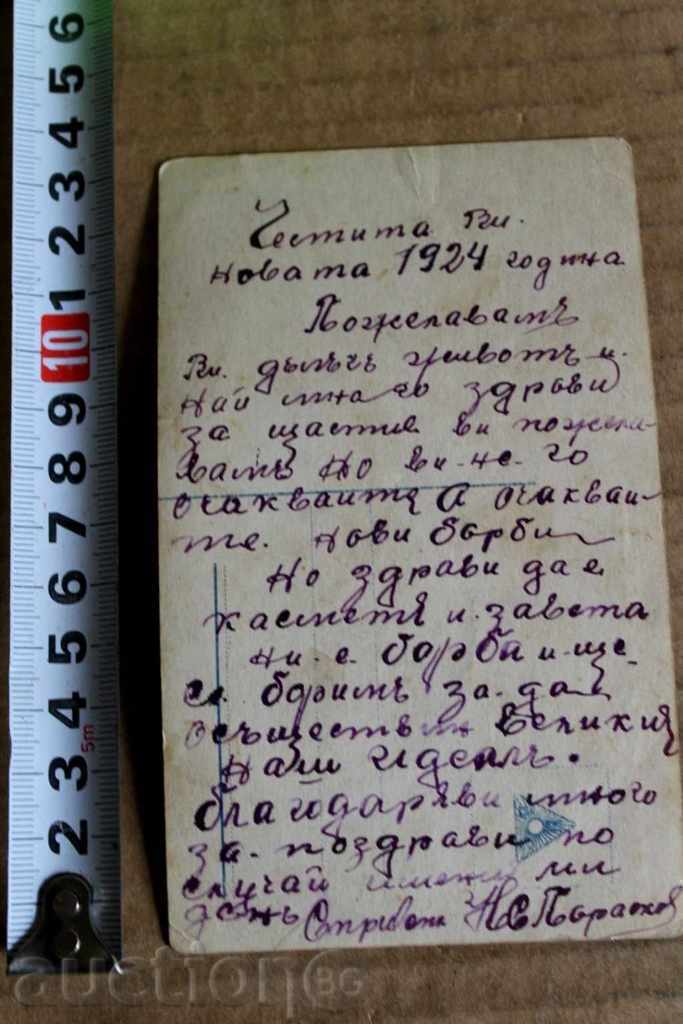 Честита Ви.
новата 1924 година
Пожелавамъ
Ви. дълъгъ животъ и.
най много здрави
за щастие ви пожела-
вамъ но ви-не-го
очаквайте а очаквай-
те. нови борби
но здрави да е
касметя и. завета
ни. е. борба и-ще-
се боримъ за-да
осъществим Великия
наш Идеалъ.
благодаря ви много
за-поздрави по
случай имени ми
день С привет Н С Параске
6
5
4
3
2
1
10
9
8
7
6
5
4
3
2
5m
auctionBG